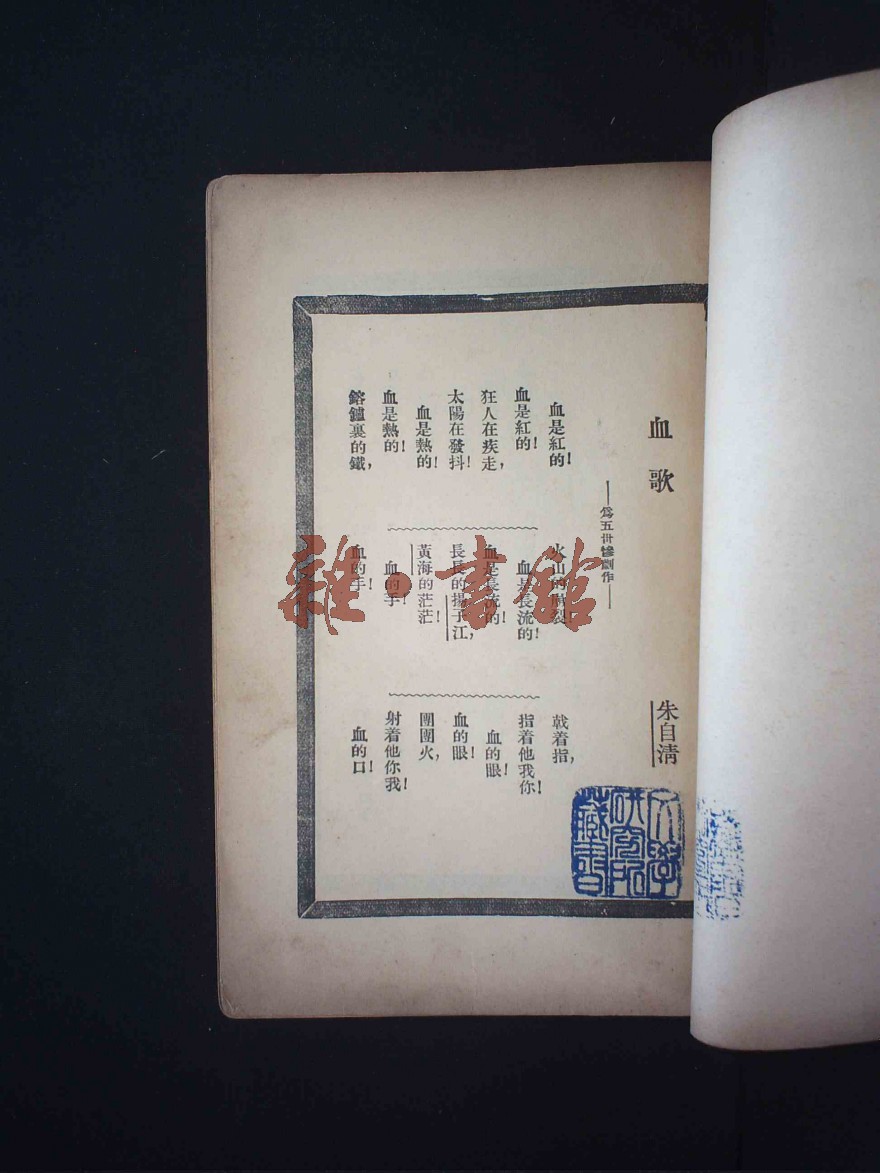 血歌
——爲五卅慘劇作——
朱自清
血是紅的！
血是紅的！
狂人在疾走，
太陽在發抖！
血是熱的！
血是熱的！
鎔鑪裏的鐵，
火山的崩裂！
血是長流的！
血是長流的！
長長的揚子江，
黃海的茫茫！
血的手！
血的手！
戟着指，
指着他我你！
血的眼！
血的眼！
團團火，
射着他你我！
血的口！
雜·書館
文學
研究所
藏書